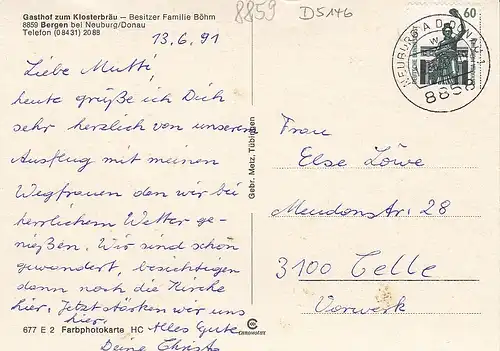 Gasthof zum Klosterbräu – Besitzer Familie Böhm
8859 Bergen bei Neuburg/Donau
Telefon (0 84 31) 20 88
8859
D5146
13.6.91
Liebe Mutti,
heute grüße ich Dich
sehr herzlich von unserem
Ausflug mit meinen
Wegfrauen den wir bei
herrlichem Wetter ge-
nießen. Wir sind schon
gewandert, besichtigen
dann noch die Kirche
hier. Jetzt stärken wir uns
hier. Alles Gute
Deine Christa
677 E 2 Farbphotokarte HC
Gebr. Metz, Tübingen
CHROMOTON
60
NEUBURG A D DONAU 1
8858
Frau
Else Löwe
Mendonstr. 28
3100 Celle
Vorwerk